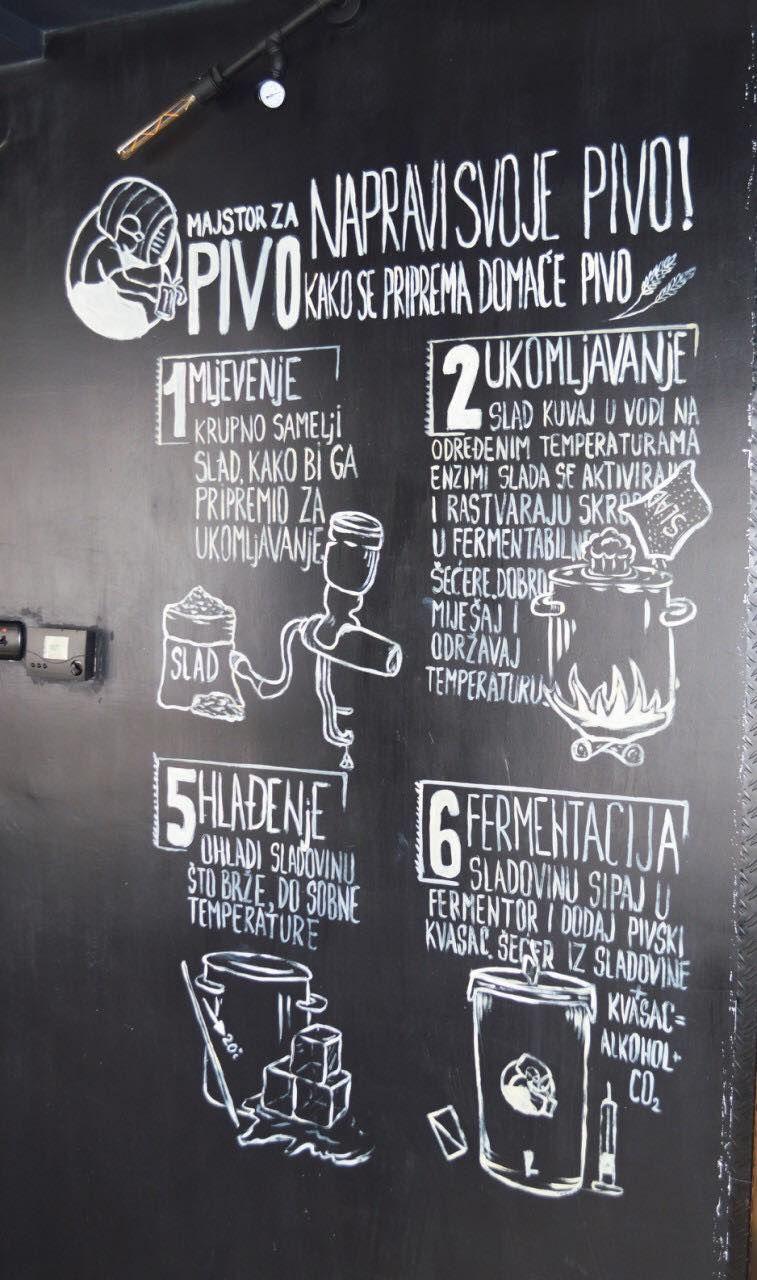 MAJSTOR ZA
PIVO
NAPRAVI SVOJE PIVO!
KAKO SE PRIPREMA DOMAĆE PIVO
1 MLJEVENJE
KRUPNO SAMELJI
SLAD, KAKO BI GA
PRIPREMIO ZA
UKOMLJAVANJE
SLAD
2 UKOMLJAVANJE
SLAD KUVAJ U VODI NA
ODREĐENIM TEMPERATURAMA
ENZIMI SLADA SE AKTIVIRAJU
I RASTVARAJU SKROB
U FERMENTABILNE
ŠEĆERE. DOBRO
MIJEŠAJ I
ODRŽAVAJ
TEMPERATURU
SLAD
5 HLAĐENJE
OHLADI SLADOVINU
ŠTO BRŽE, DO SOBNE
TEMPERATURE
6 FERMENTACIJA
SLADOVINU SIPAJ U
FERMENTOR I DODAJ PIVSKI
KVASAC. ŠEĆER IZ SLADOVINE
+
KVASAC =
ALKOHOL +
CO₂